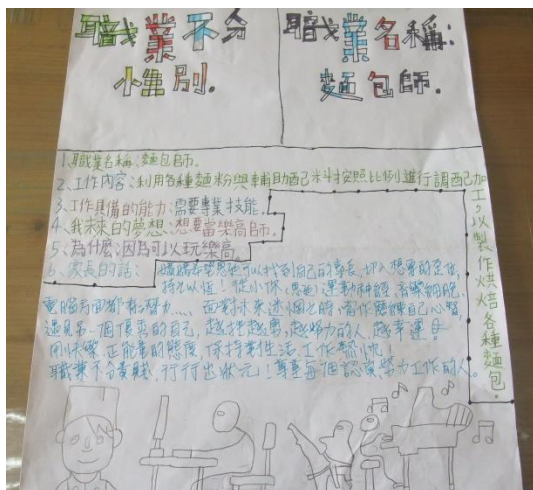 職業不分
性別.
職業名稱:
麵包師.
1、職業名稱:麵包師。
2、工作內容:利用各種麵粉與輔助配料按照比例進行調配加
工分以製作烘焙各種麵包.
3、工作具備的能力:需要專業技能。
4、我未來的夢想:想要當樂高師。
5、為什麼:因為可以玩樂高。
6、家長的話: 媽媽希望你可以找到自己的專長,
持之以恆!從小你 運動神經、音樂細胞、
電腦方面都有潛力..... 面對未來迷惘之時,當作磨練自己心智,
遇見另一個優秀的自己,越挫越勇,越努力的人,越幸運!
用快樂、正能量的態度,保持對生活、工作熱忱,
職業不分貴賤,行行出狀元!尊重每個認真努力工作的人。